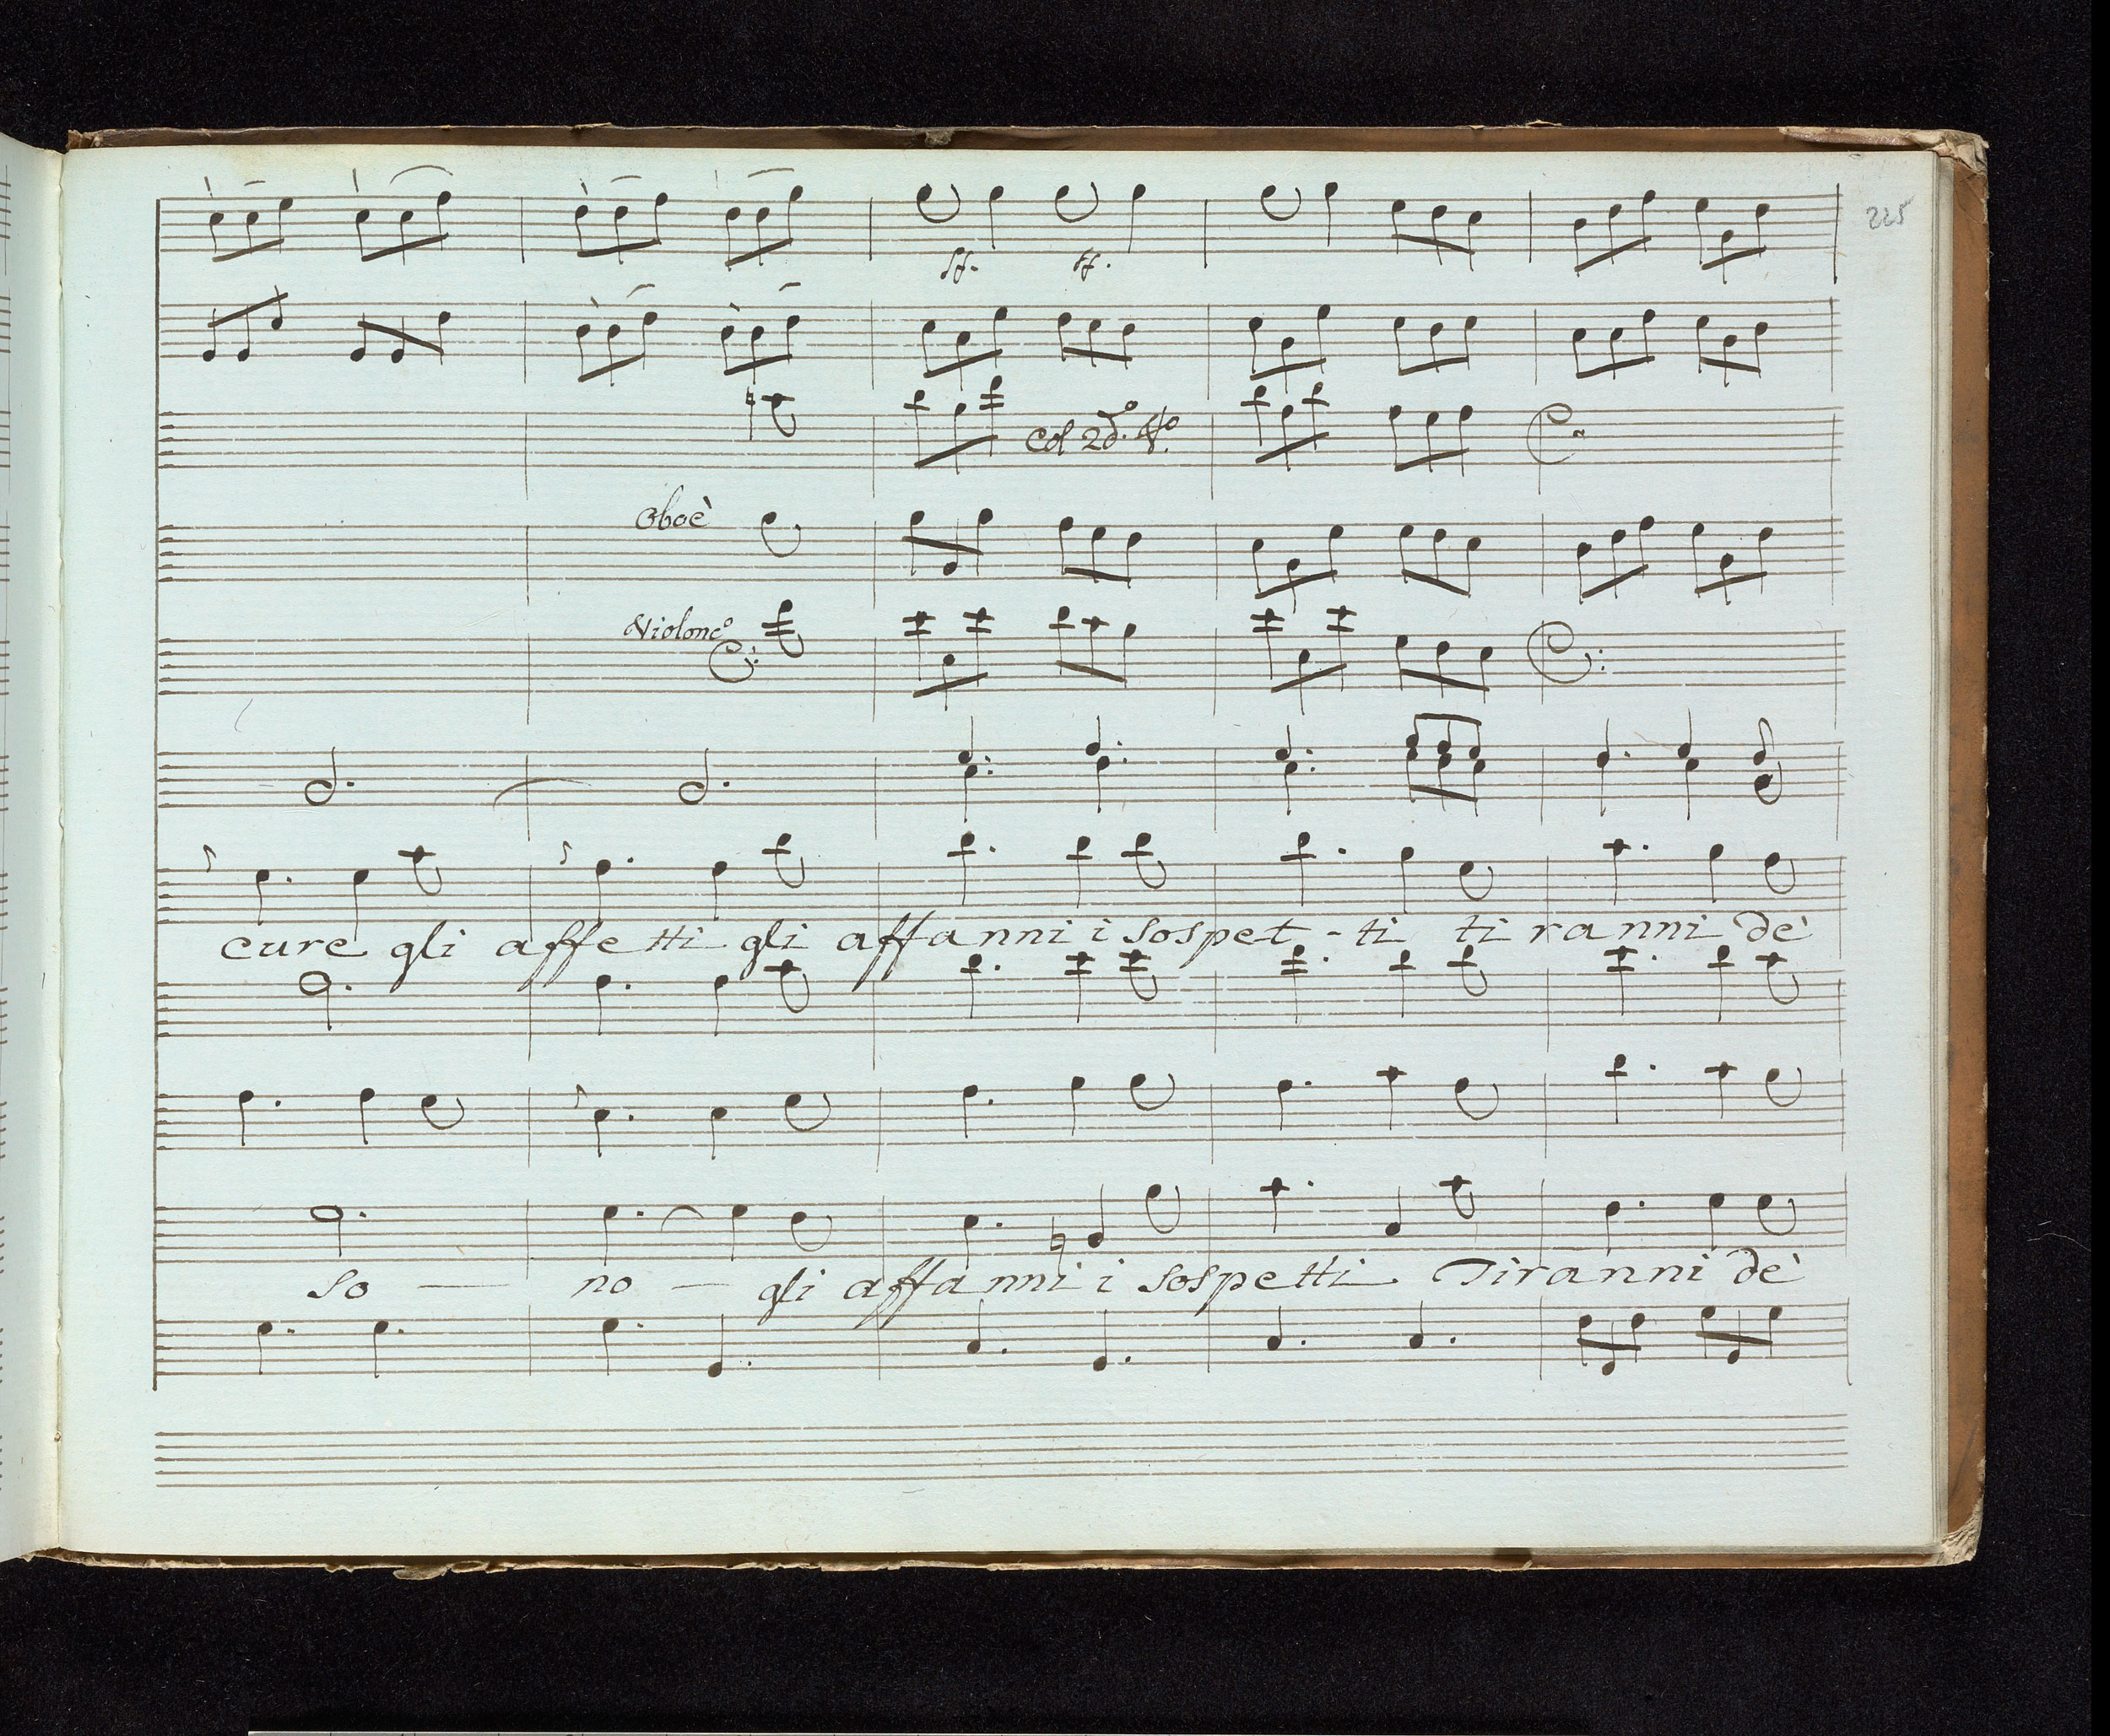 225
sf. sf.
Col 2do. Vo.
Oboè
Violonco
cure gli affetti gli affanni i sospet-ti ti ranni dè
so — no — gli affanni i sospetti Tiranni dè